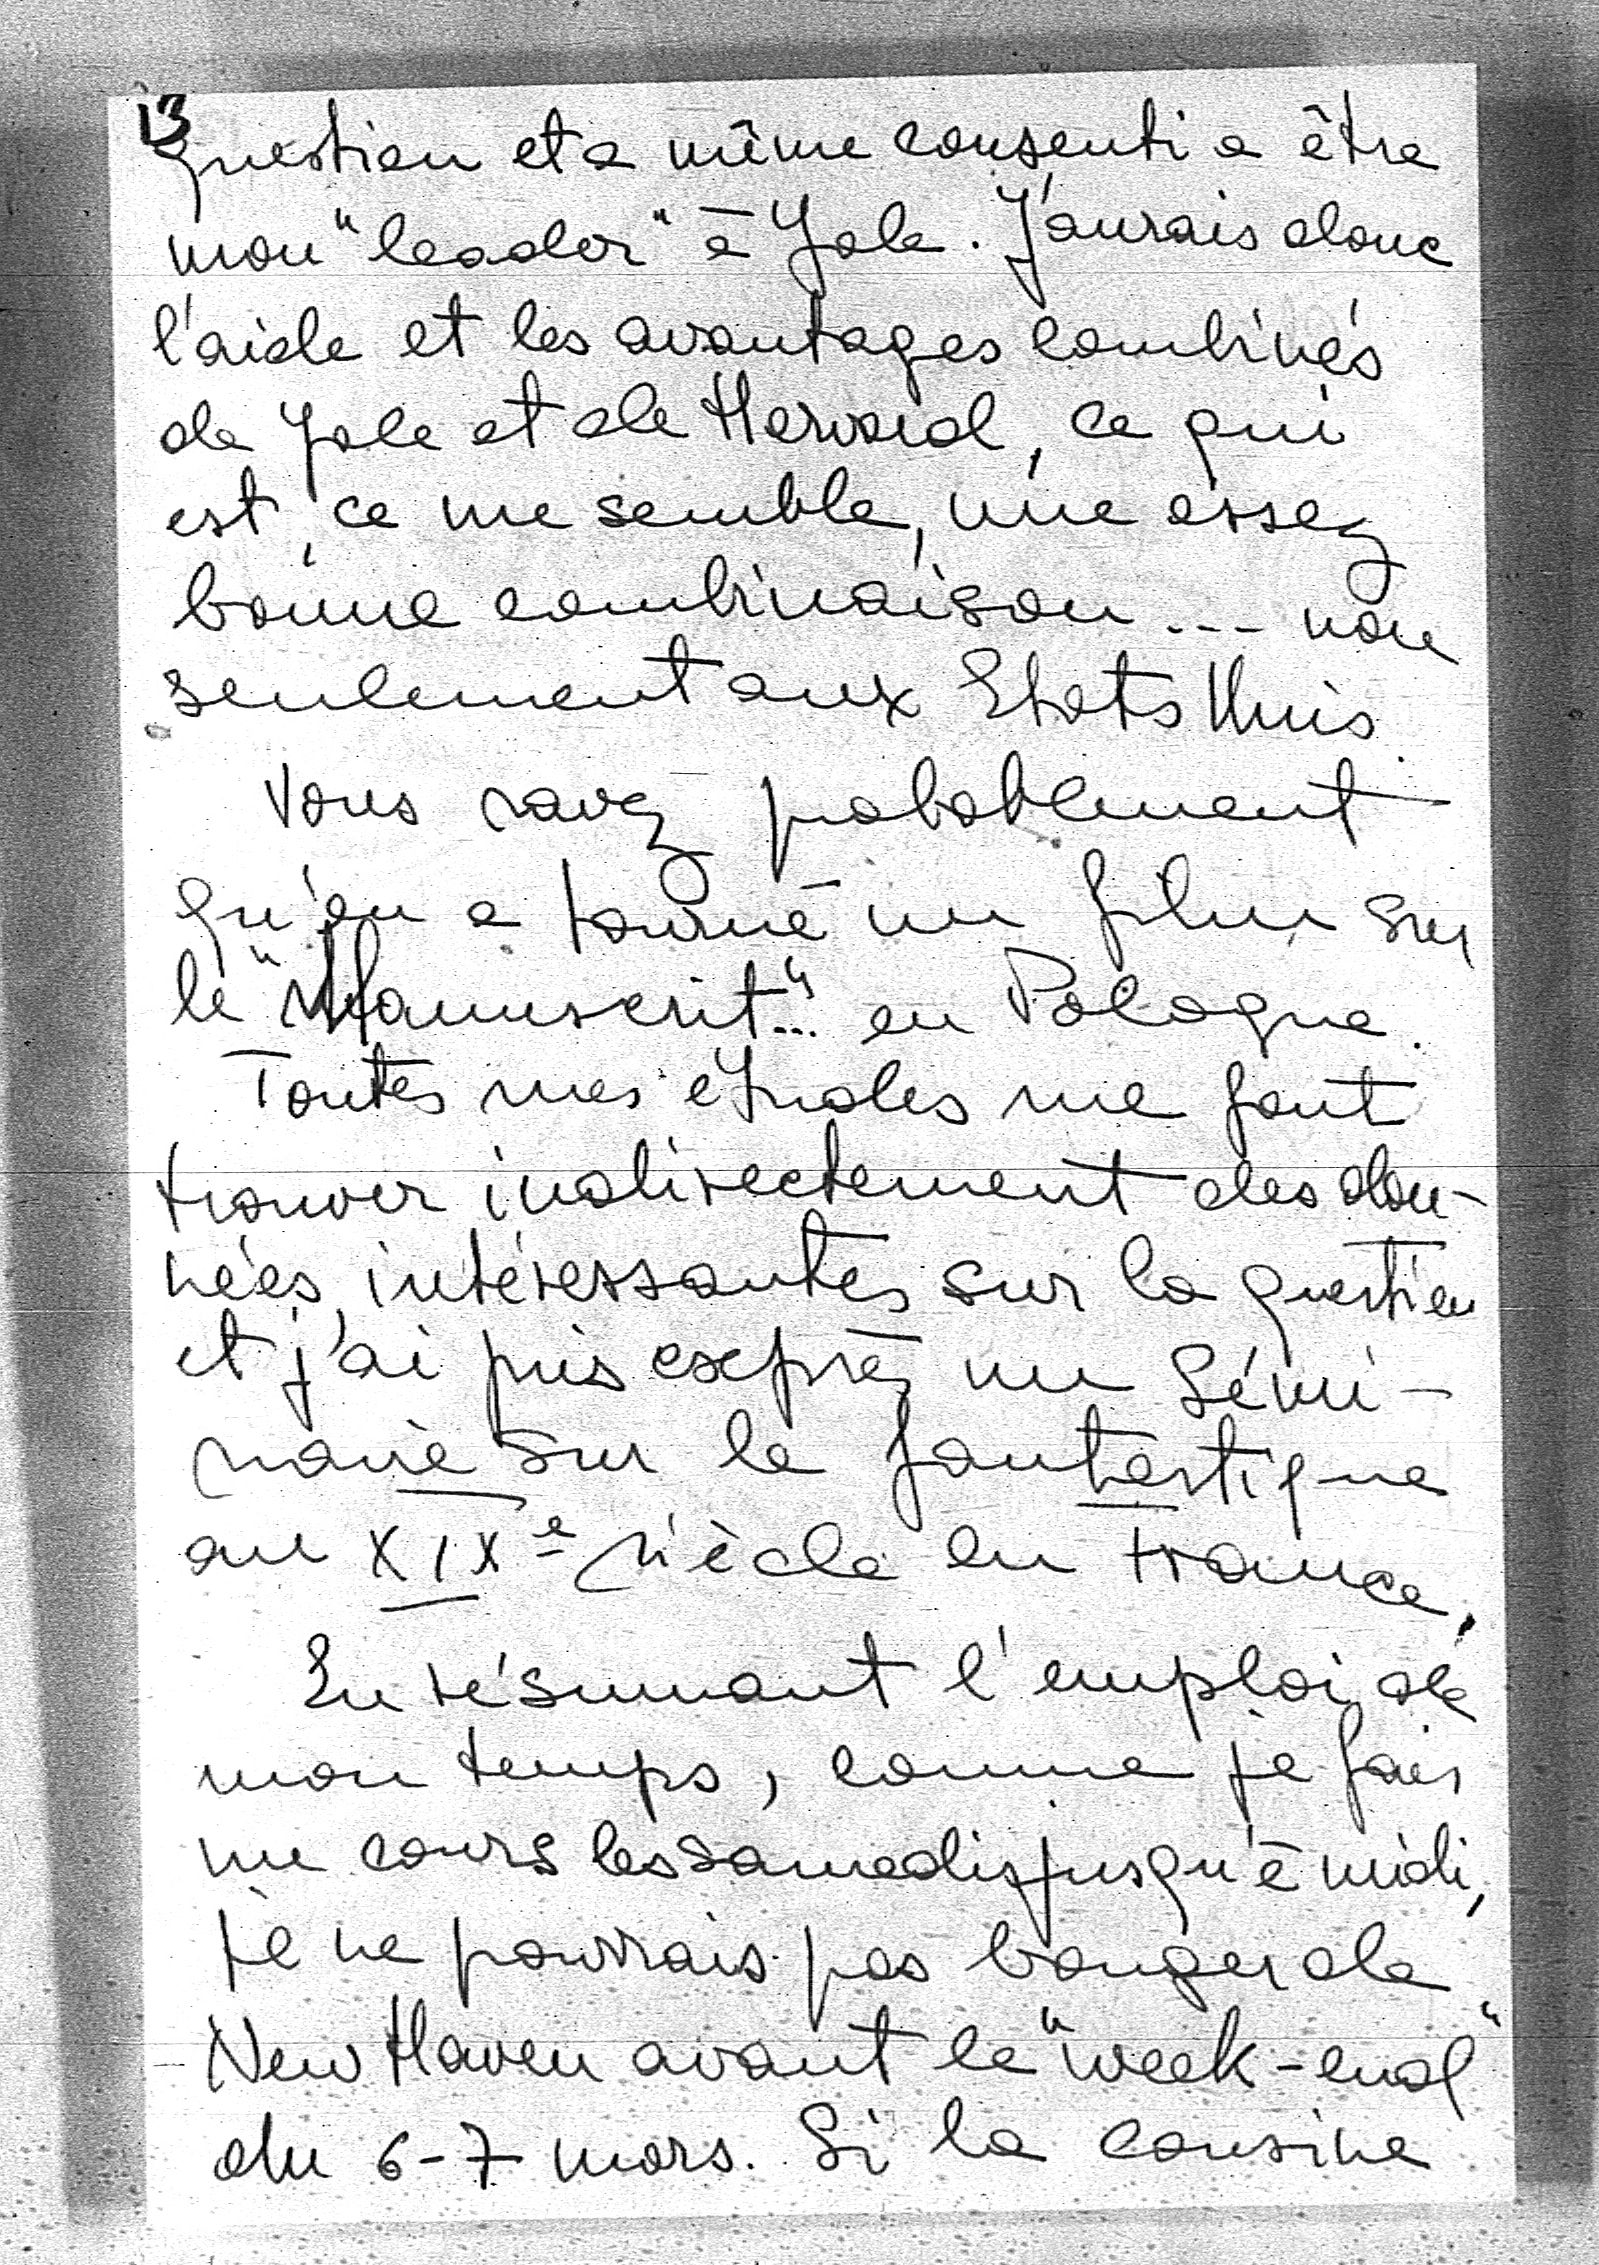 13
question et a même consenti a être
mon "leader" à Yale. J'aurais donc
l'aide et les avantages combinés
de Yale et de Harvard, ce qui
est, ce me semble, une assez
bonne combinaison... non
seulement aux Etats Unis.
Vous savez probablement
qu'on a tourné un film sur
le "Manuscrit..." en Pologne.
Toutes mes études me font
trouver indirectement des don-
nées intéressantes sur la question
et j'ai pris exprès un Sémi-
naire sur le fantastique
au XIXe siècle en France.
En résumant l'emploi de
mon temps, comme je fais
un cours les samedis jusqu'à midi,
je ne pourrais pas bouger de
New Haven avant le "week-end"
du 6-7 mars. Si la cousine